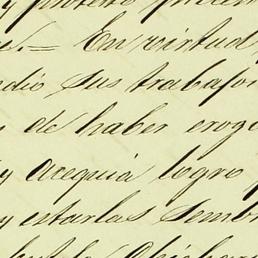 y potero
= En virtud
dio sus trabajos
de haber erog
y acequia logro
y estarlas semb